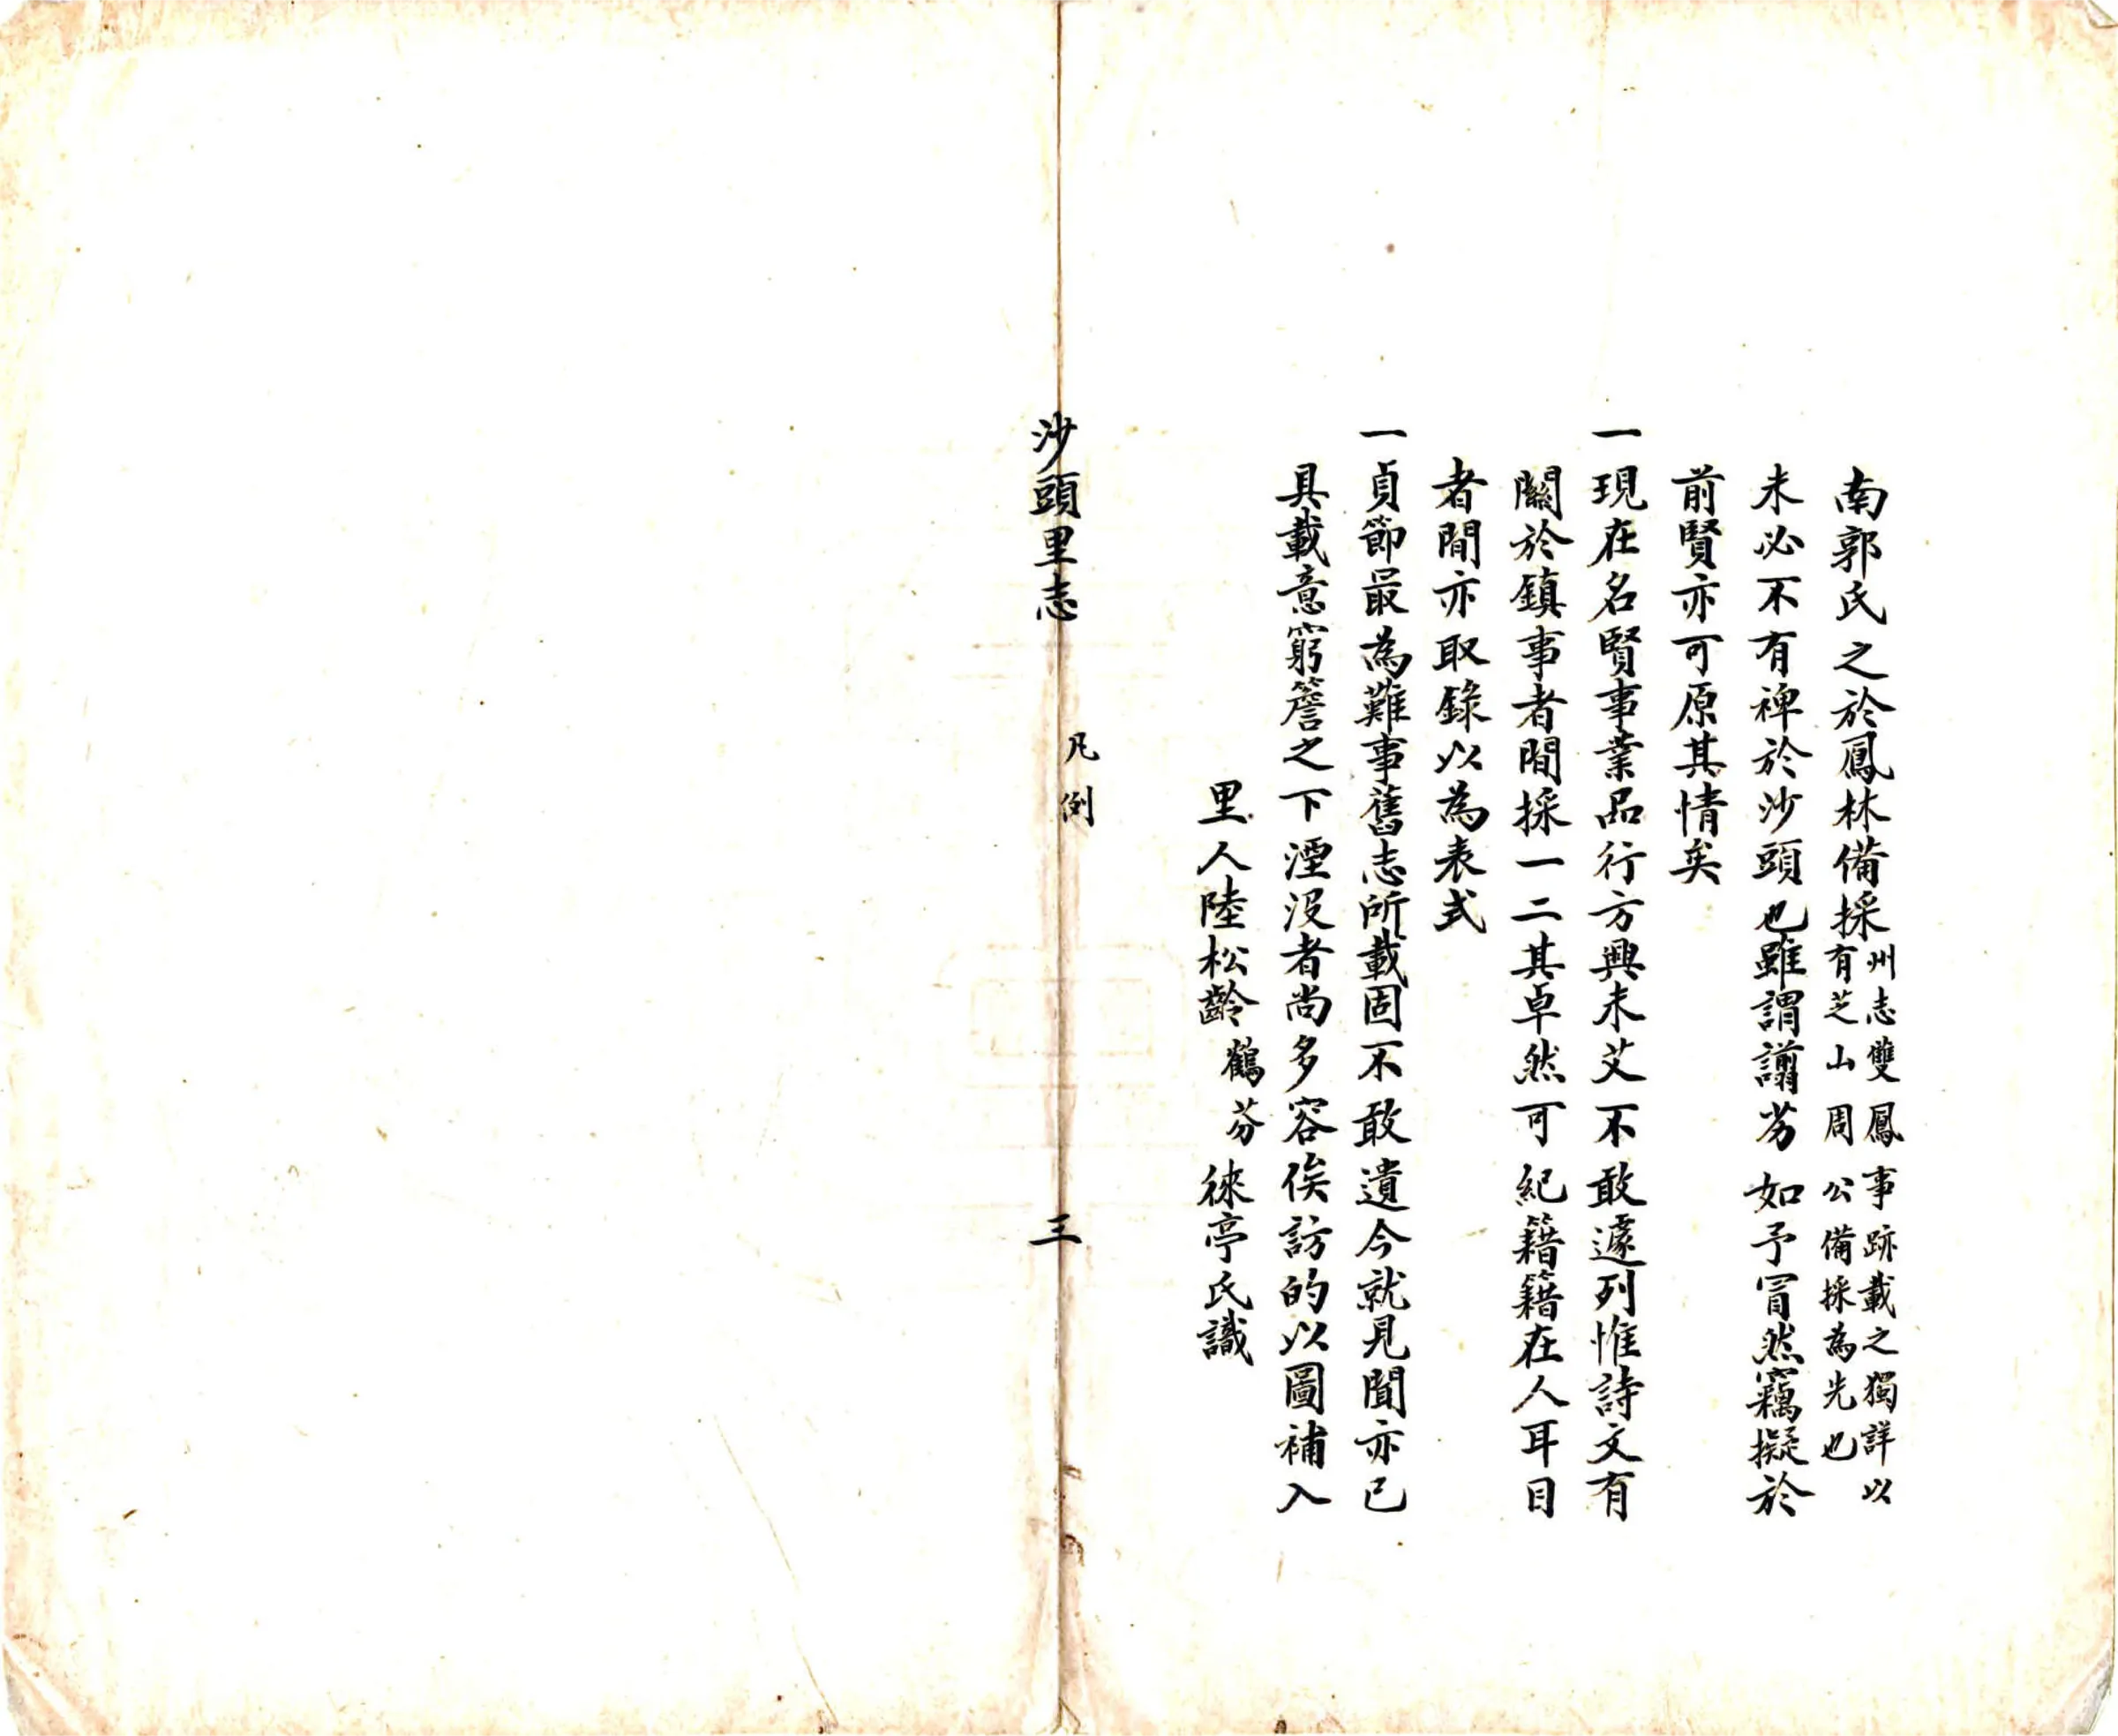 南郭氏之於鳳林備採州志雙鳳事跡載之獨詳以有芝山周公備採為先也
未必不有裨於沙頭也雖謂譾劣如予冐然竊擬於
前賢亦可原其情矣
一現在名賢事業品行方興未艾不敢遽列惟詩文有
關於鎮事者間採一二其卓然可紀籍籍在人耳目
者間亦取錄以為表式
一貞節最為難事舊志所載固不敢遺今就見聞亦已
具載意窮簷之下湮沒者尚多容俟訪的以圖補入
里人陸松齡鶴芬徠亭氏識
沙頭里志 凡例 三